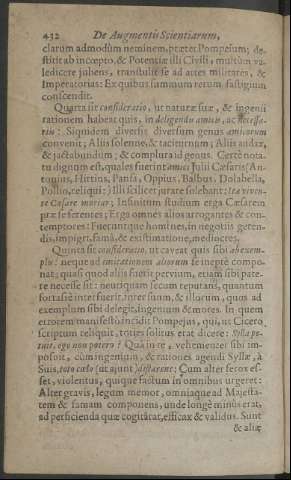 432 De Augmentis Scientiarum,
clarum admodùm neminem, præter Pompeium; de-
stitit ab incœpto, & Potentiæ illi Civili, multùm va-
ledicere jubens, transtulit se ad artes militares, &
Imperatorias: Ex quibus summum rerum fastigium
conscendit.
Quarta sit consideratio, ut naturæ suæ, & ingenii
rationem habeat quis, in deligendis amicis, ac necessa-
riis: Siquidem diversis diversum genus amicorum
convenit; Aliis solenne, & taciturnum; Aliis audax,
& jactabundum; & complura id genus. Certè nota-
tu dignum est, quales fuerint amici Julii Cæsaris (An-
tonius, Hirtius, Pansa, Oppius, Balbus, Dolabella,
Pollio, reliqui:) Illi scilicet jurare solebant; Ita viven-
te Cæsare moriar; Infinitum studium erga Cæsarem
præ se ferentes; Erga omnes alios arrogantes & con-
temptores: Fueruntque homines, in negotiis geren-
dis, impigri, famâ, & existimatione, mediocres.
Quinta sit consideratio, ut caveat quis sibi ab exem-
plis: neque ad imitationem aliorum se ineptè compo-
nat; quasi quod aliis fuerit pervium, etiam sibi pate-
re necesse sit: neutiquam secum reputans, quantum
fortasse interfuerit, inter suum, & illorum, quos ad
exemplum sibi delegit, ingenium & mores. In quem
errorem manifestò incidit Pompeius, qui, ut Cicero
scriptum reliquit, toties solitus erat dicere: Sylla po-
tuit, ego non potero? Quâ in re, vehementer sibi im-
posuit, cùm ingenium, & rationes agendi Syllæ, à
Suis, toto cœlo (ut ajunt) distarent: Cùm alter ferox es-
set, violentus, quique factum in omnibus urgeret:
Alter gravis, legum memor, omniaque ad Majesta-
tem & famam componens, unde longè minùs erat,
ad perficienda quæ cogitârat, efficax & validus. Sunt
& aliæ